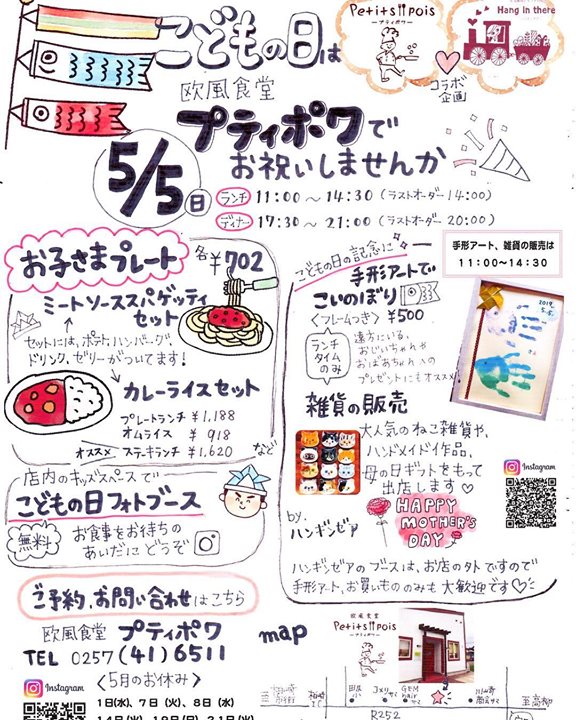 こどもの日は
Petits pois
ープティポワー
Hang in there
コラボ
企画
欧風食堂
プティポワで
お祝いしませんか
5/5日
ランチ 11:00〜14:30 (ラストオーダー14:00)
ディナー 17:30〜21:00 (ラストオーダー 20:00)
お子さまプレート 各¥702
ミートソーススパゲッティ
セット
セットには、ポテト、ハンバーグ、
ドリンク、ゼリーがついてます!
カレーライスセット
プレートランチ ¥1,188
オムライス ¥ 918
オススメ ステーキランチ ¥1,620 など
店内のキッズスペースで
こどもの日フォトブース
無料
お食事をお待ちの
あいだにどうぞ
手形アート、雑貨の販売は
11:00〜14:30
こどもの日の記念に
手形アートで
こいのぼり
<フレームつき> ¥500
ランチ
タイム
のみ
遠方にいる、
おじいちゃんや
おばあちゃんへの
プレゼントにもオススメ!
2019.
5.5.
雑貨の販売
大人気のねこ雑貨や、
ハンドメイド作品、
母の日ギフトをもって
出店します♡
by.
ハンギンゼア
HAPPY
MOTHER'S
DAY
Instagram
ハンギンゼアのブースは、お店の外ですので
手形アート、お買いもののみも大歓迎です♡
ご予約、お問い合わせはこちら
欧風食堂 プティポワ
TEL 0257 (41) 6511
Instagram
<5月のお休み>
1日(水)、7日(火)、8日(水)
map
欧風食堂
Petits pois
ープティポワー
至高柳
R252